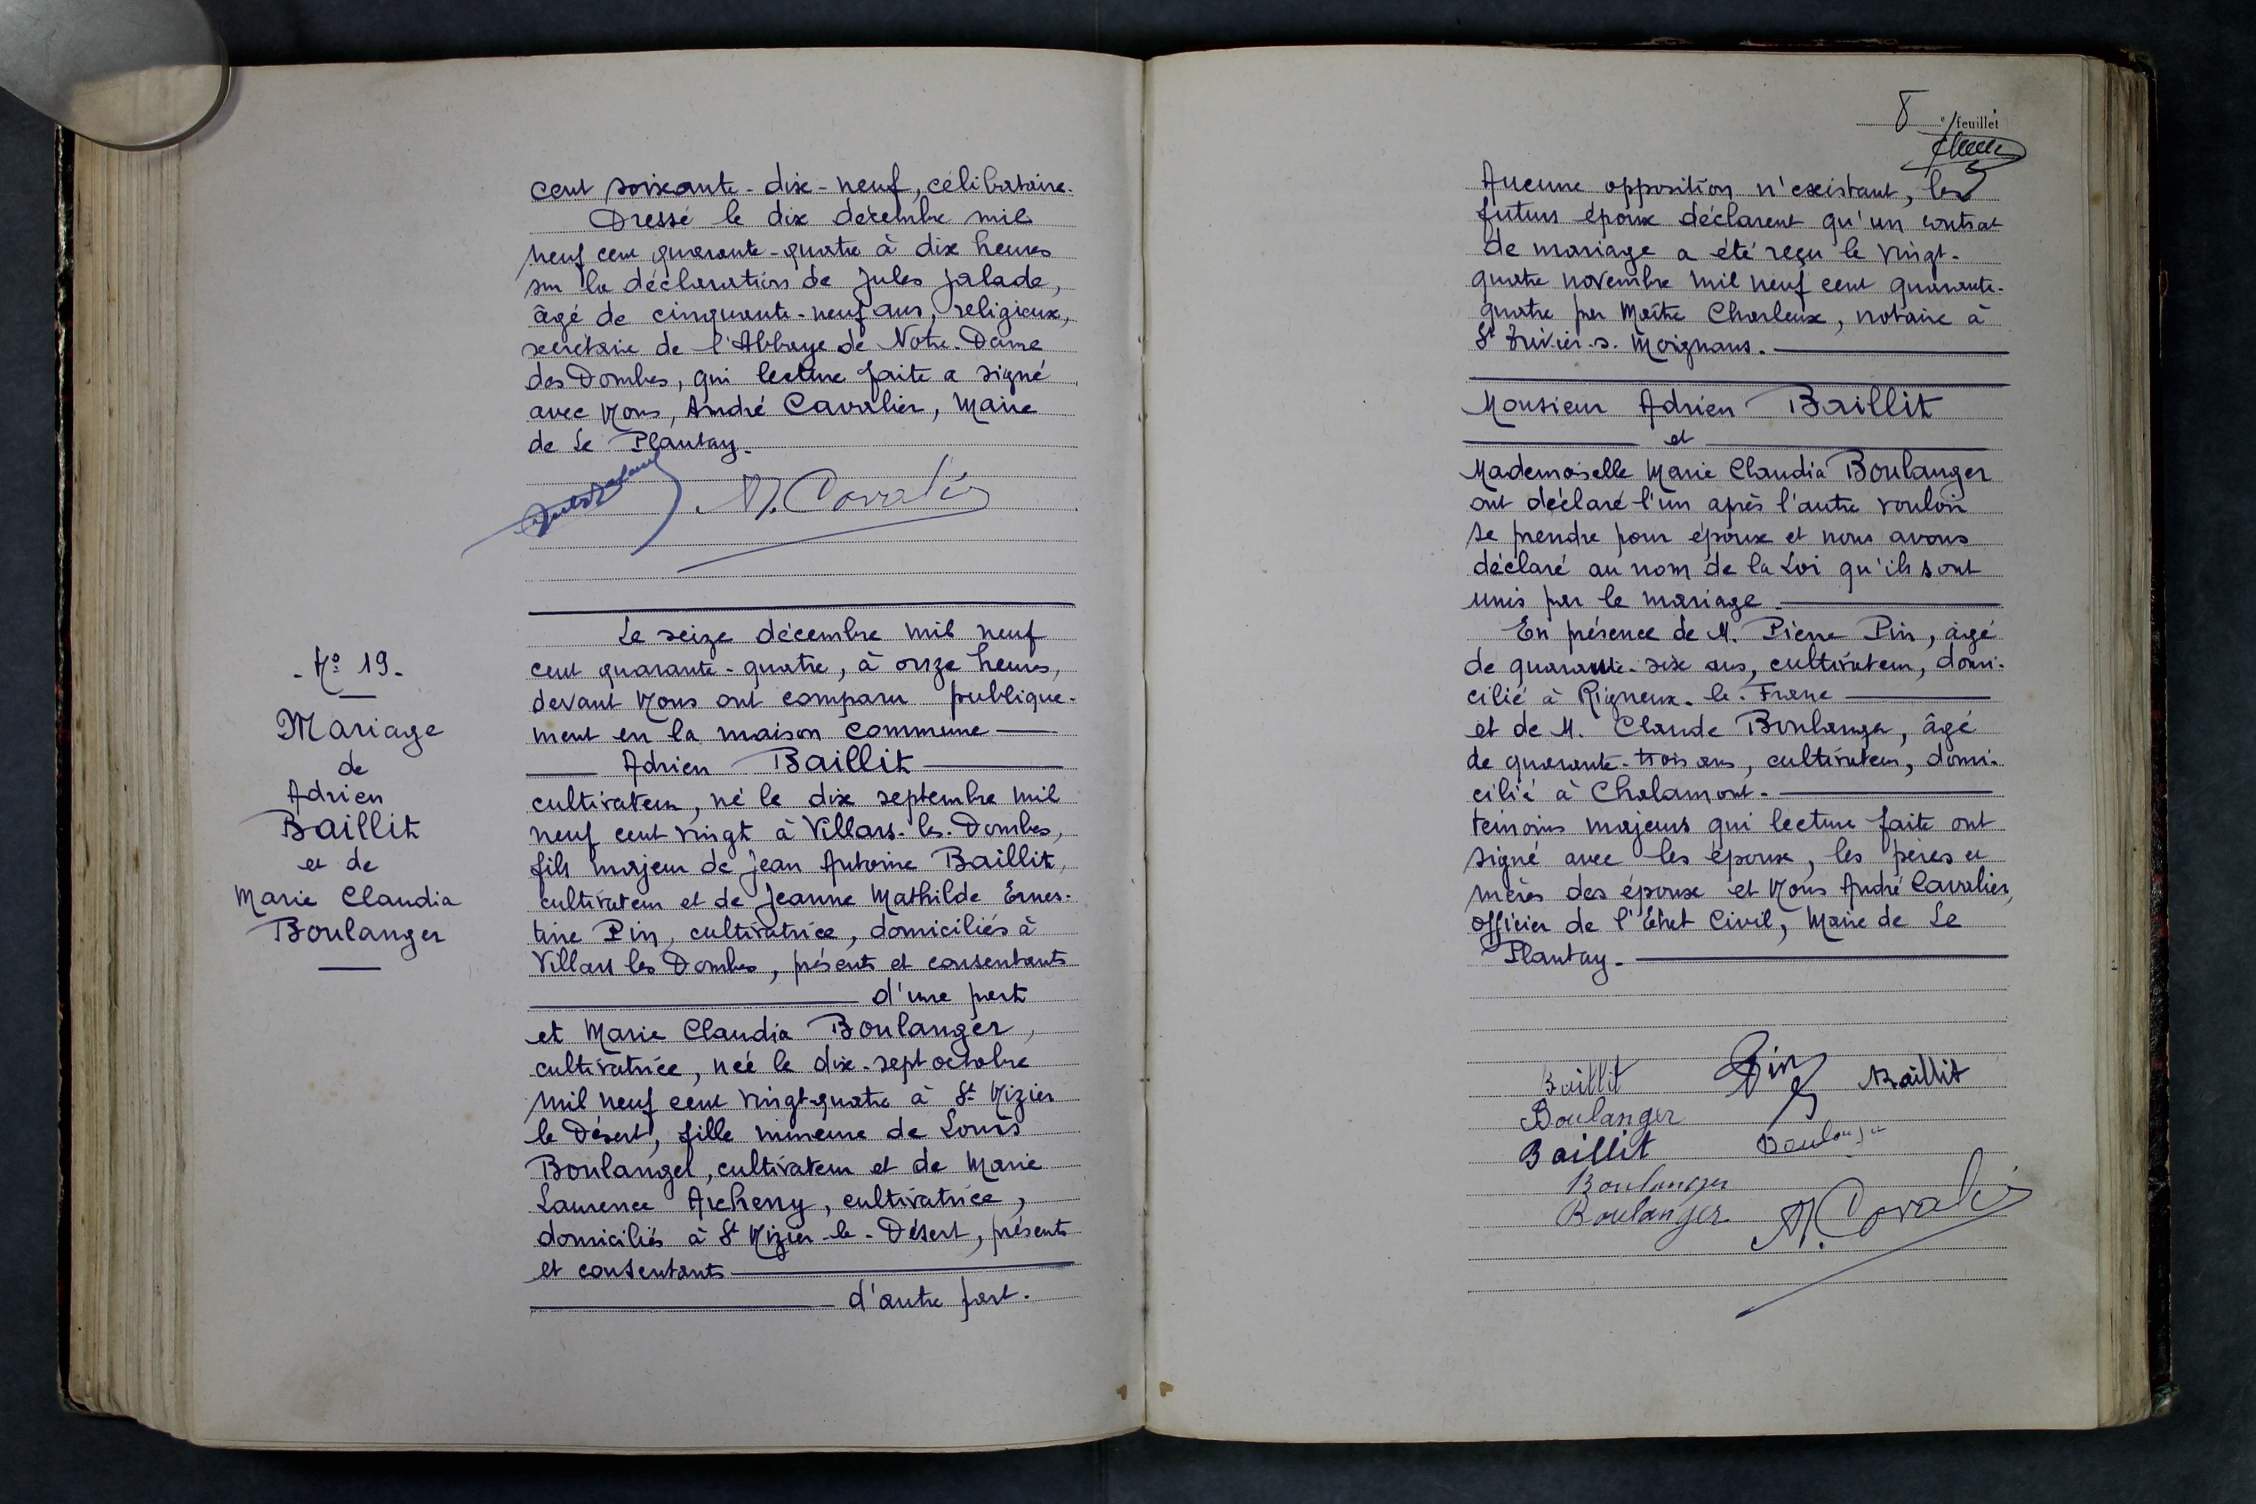 cent soixante-dix-neuf, célibataire.
Dressé le dix décembre mil
neuf cent quarante-quatre à dix heures
sur la déclaration de Jules Jalade,
âgé de cinquante-neuf ans, religieux,
secrétaire de l'Abbaye de Notre-Dame
des Dombes, qui lecture faite a signé
avec Nous, André Cavalier, Maire
de Le Plantay.
A. Cavalier
- No 19 -
Mariage
de
Adrien
Baillit
et de
Marie Claudia
Boulanger
Le seize décembre mil neuf
cent quarante-quatre, à onze heures,
devant Nous ont comparu publique-
ment en la maison commune
Adrien Baillit
cultivateur, né le dix septembre mil
neuf cent vingt à Villars-les-Dombes,
fils majeur de Jean Antoine Baillit,
cultivateur et de Jeanne Mathilde Ernes-
tine Pin, cultivatrice, domiciliés à
Villars les Dombes, présents et consentants
d'une part
et Marie Claudia Boulanger,
cultivatrice, née le dix-sept octobre
mil neuf cent vingt-quatre à St Nizier
le Désert, fille mineure de Louis
Boulanger, cultivateur et de Marie
Laurence Archeny, cultivatrice,
domiciliés à St Nizier-le-Désert, présents
et consentants
d'autre part.
8 e feuillet
Aucune opposition n'existant, les
futurs époux déclarent qu'un contrat
de mariage a été reçu le vingt-
quatre novembre mil neuf cent quarante-
quatre par Maître Charleux, notaire à
St Trivier-s. Moignans.
Monsieur Adrien Baillit
et
Mademoiselle Marie Claudia Boulanger
ont déclaré l'un après l'autre vouloir
se prendre pour époux et nous avons
déclaré au nom de la Loi qu'ils sont
unis par le mariage.
En présence de M. Pierre Pin, âgé
de quarante-six ans, cultivateur, domi-
cilié à Rigneux-le-Franc
et de M. Claude Boulanger, âgé
de quarante-trois ans, cultivateur, domi-
cilié à Chalamont.
témoins majeurs qui lecture faite ont
signé avec les époux, les pères et
mères des époux et Nous André Cavalier,
officier de l'Etat Civil, Maire de Le
Plantay.
Baillit Pin Baillit
Boulanger
Baillit Boulanger
Boulanger
Boulanger A. Cavalier